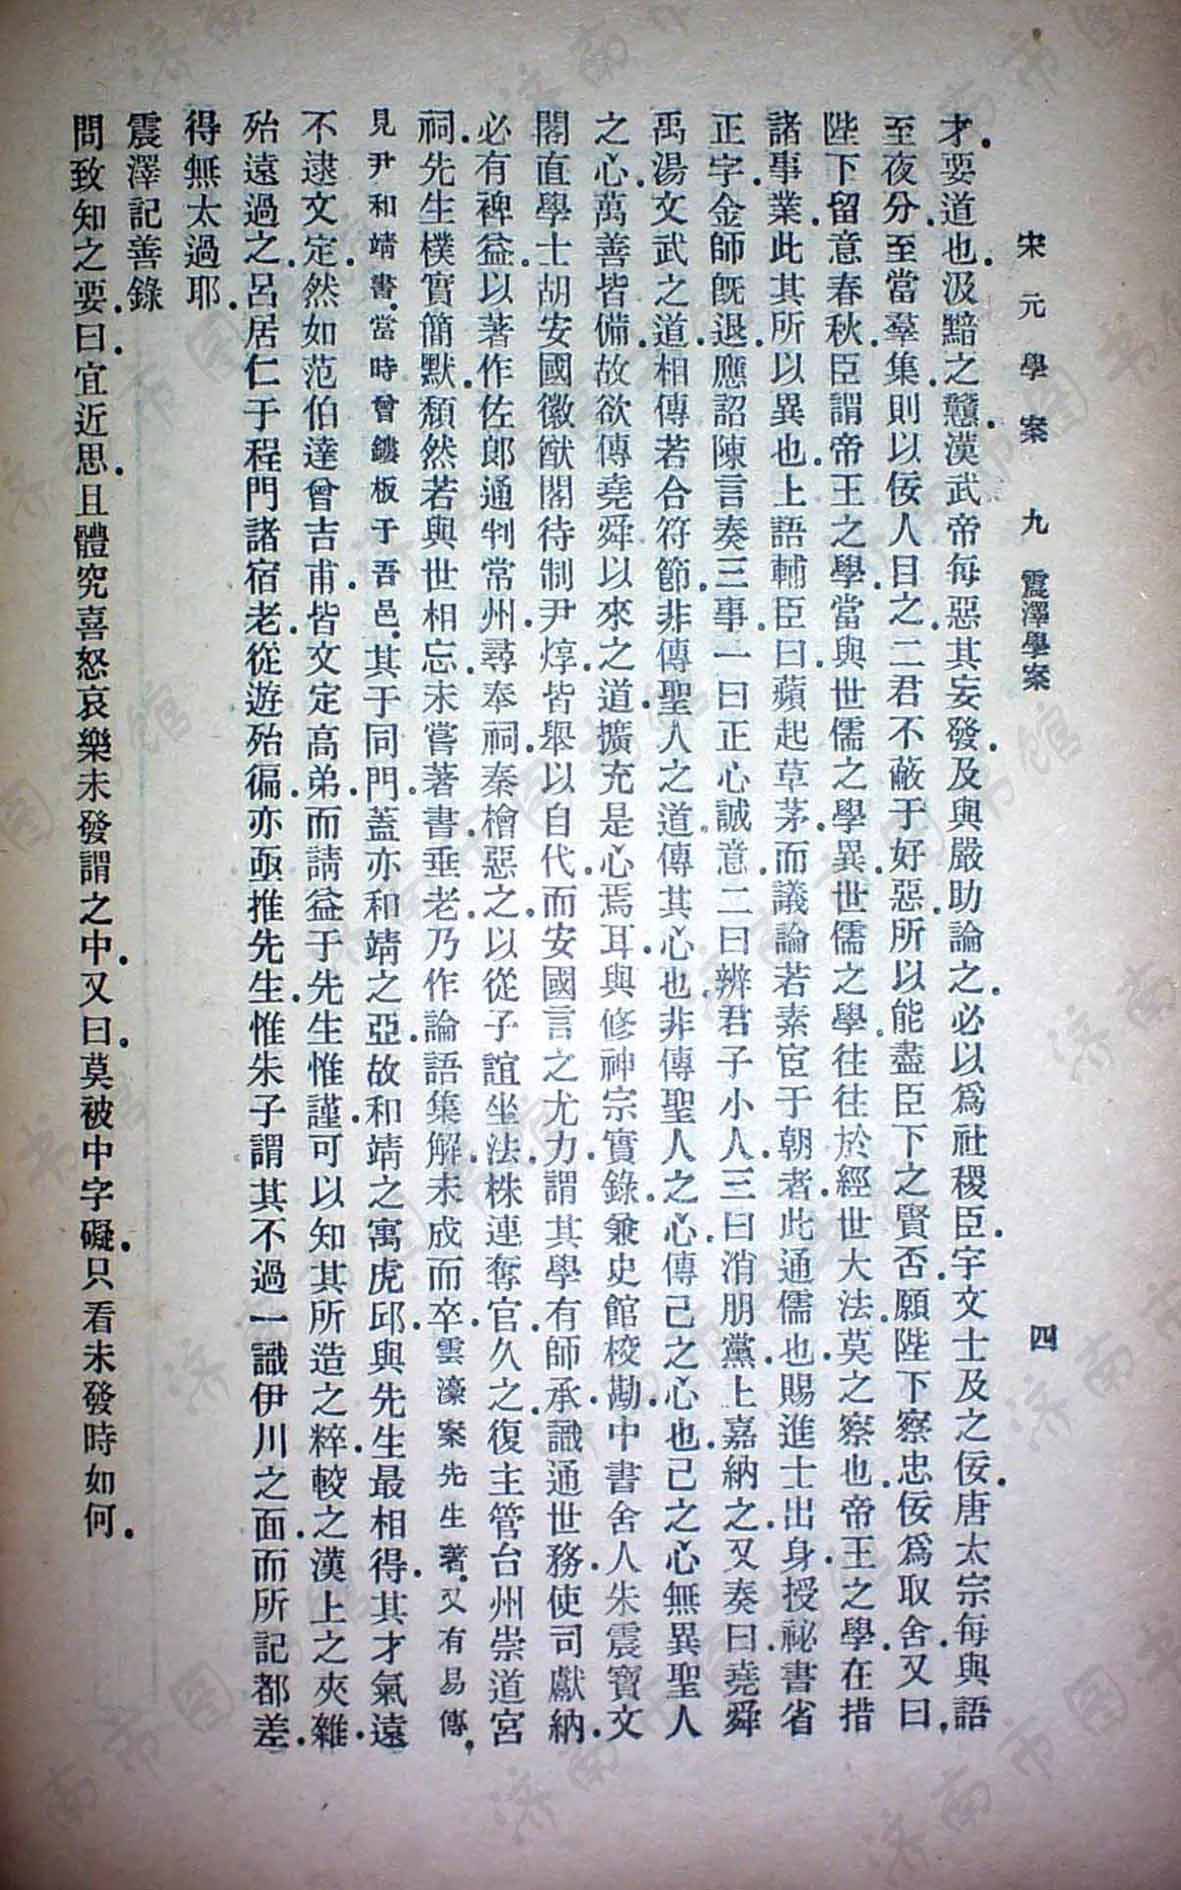 宋元學案 九 震澤學案 四
才.要道也.汲黯之戇.漢武帝每惡其妄發.及與嚴助論之.必以爲社稷臣.宇文士及之佞.唐太宗每與語
至夜分.至當羣集.則以佞人目之.二君不蔽于好惡.所以能盡臣下之賢否.願陛下察忠佞爲取舍.又曰.
陛下留意春秋.臣謂帝王之學.當與世儒之學異.世儒之學.往往於經世大法.莫之察也.帝王之學.在措
諸事業.此其所以異也.上語輔臣曰.蘋起草茅.而議論若素宦于朝者.此通儒也.賜進士出身.授祕書省
正字.金師既退.應詔陳言.奏三事.一曰正心誠意.二曰辨君子小人.三曰消朋黨.上嘉納之.又奏曰.堯舜
禹湯文武之道.相傳若合符節.非傳聖人之道.傳其心也.非傳聖人之心.傳己之心也.己之心無異聖人
之心.萬善皆備.故欲傳堯舜以來之道.擴充是心焉耳.與修神宗實錄.兼史館校勘.中書舍人朱震.寶文
閣直學士胡安國.徽猷閣待制尹焞.皆舉以自代.而安國言之尤力.謂其學有師承.識通世務.使司獻納.
必有裨益.以著作佐郎通判常州.尋奉祠.秦檜惡之.以從子誼坐法.株連奪官.久之.復主管台州崇道宮
祠.先生樸實簡默.頹然若與世相忘.未嘗著書.垂老.乃作論語集解.未成而卒.雲濠案先生著.又有易傳.
見尹和靖書.當時曾鏤板于吾邑.其于同門.蓋亦和靖之亞.故和靖之寓虎邱.與先生最相得.其才氣遠
不逮文定.然如范伯達曾吉甫.皆文定高弟.而請益于先生惟謹.可以知其所造之粹.較之漢上之夾雜.
殆遠過之.呂居仁于程門諸宿老.從遊殆徧.亦亟推先生.惟朱子謂其不過一識伊川之面.而所記都差.
得無太過耶.
震澤記善錄
問致知之要.曰.宜近思.且體究喜怒哀樂未發謂之中.又曰.莫被中字礙.只看未發時如何.